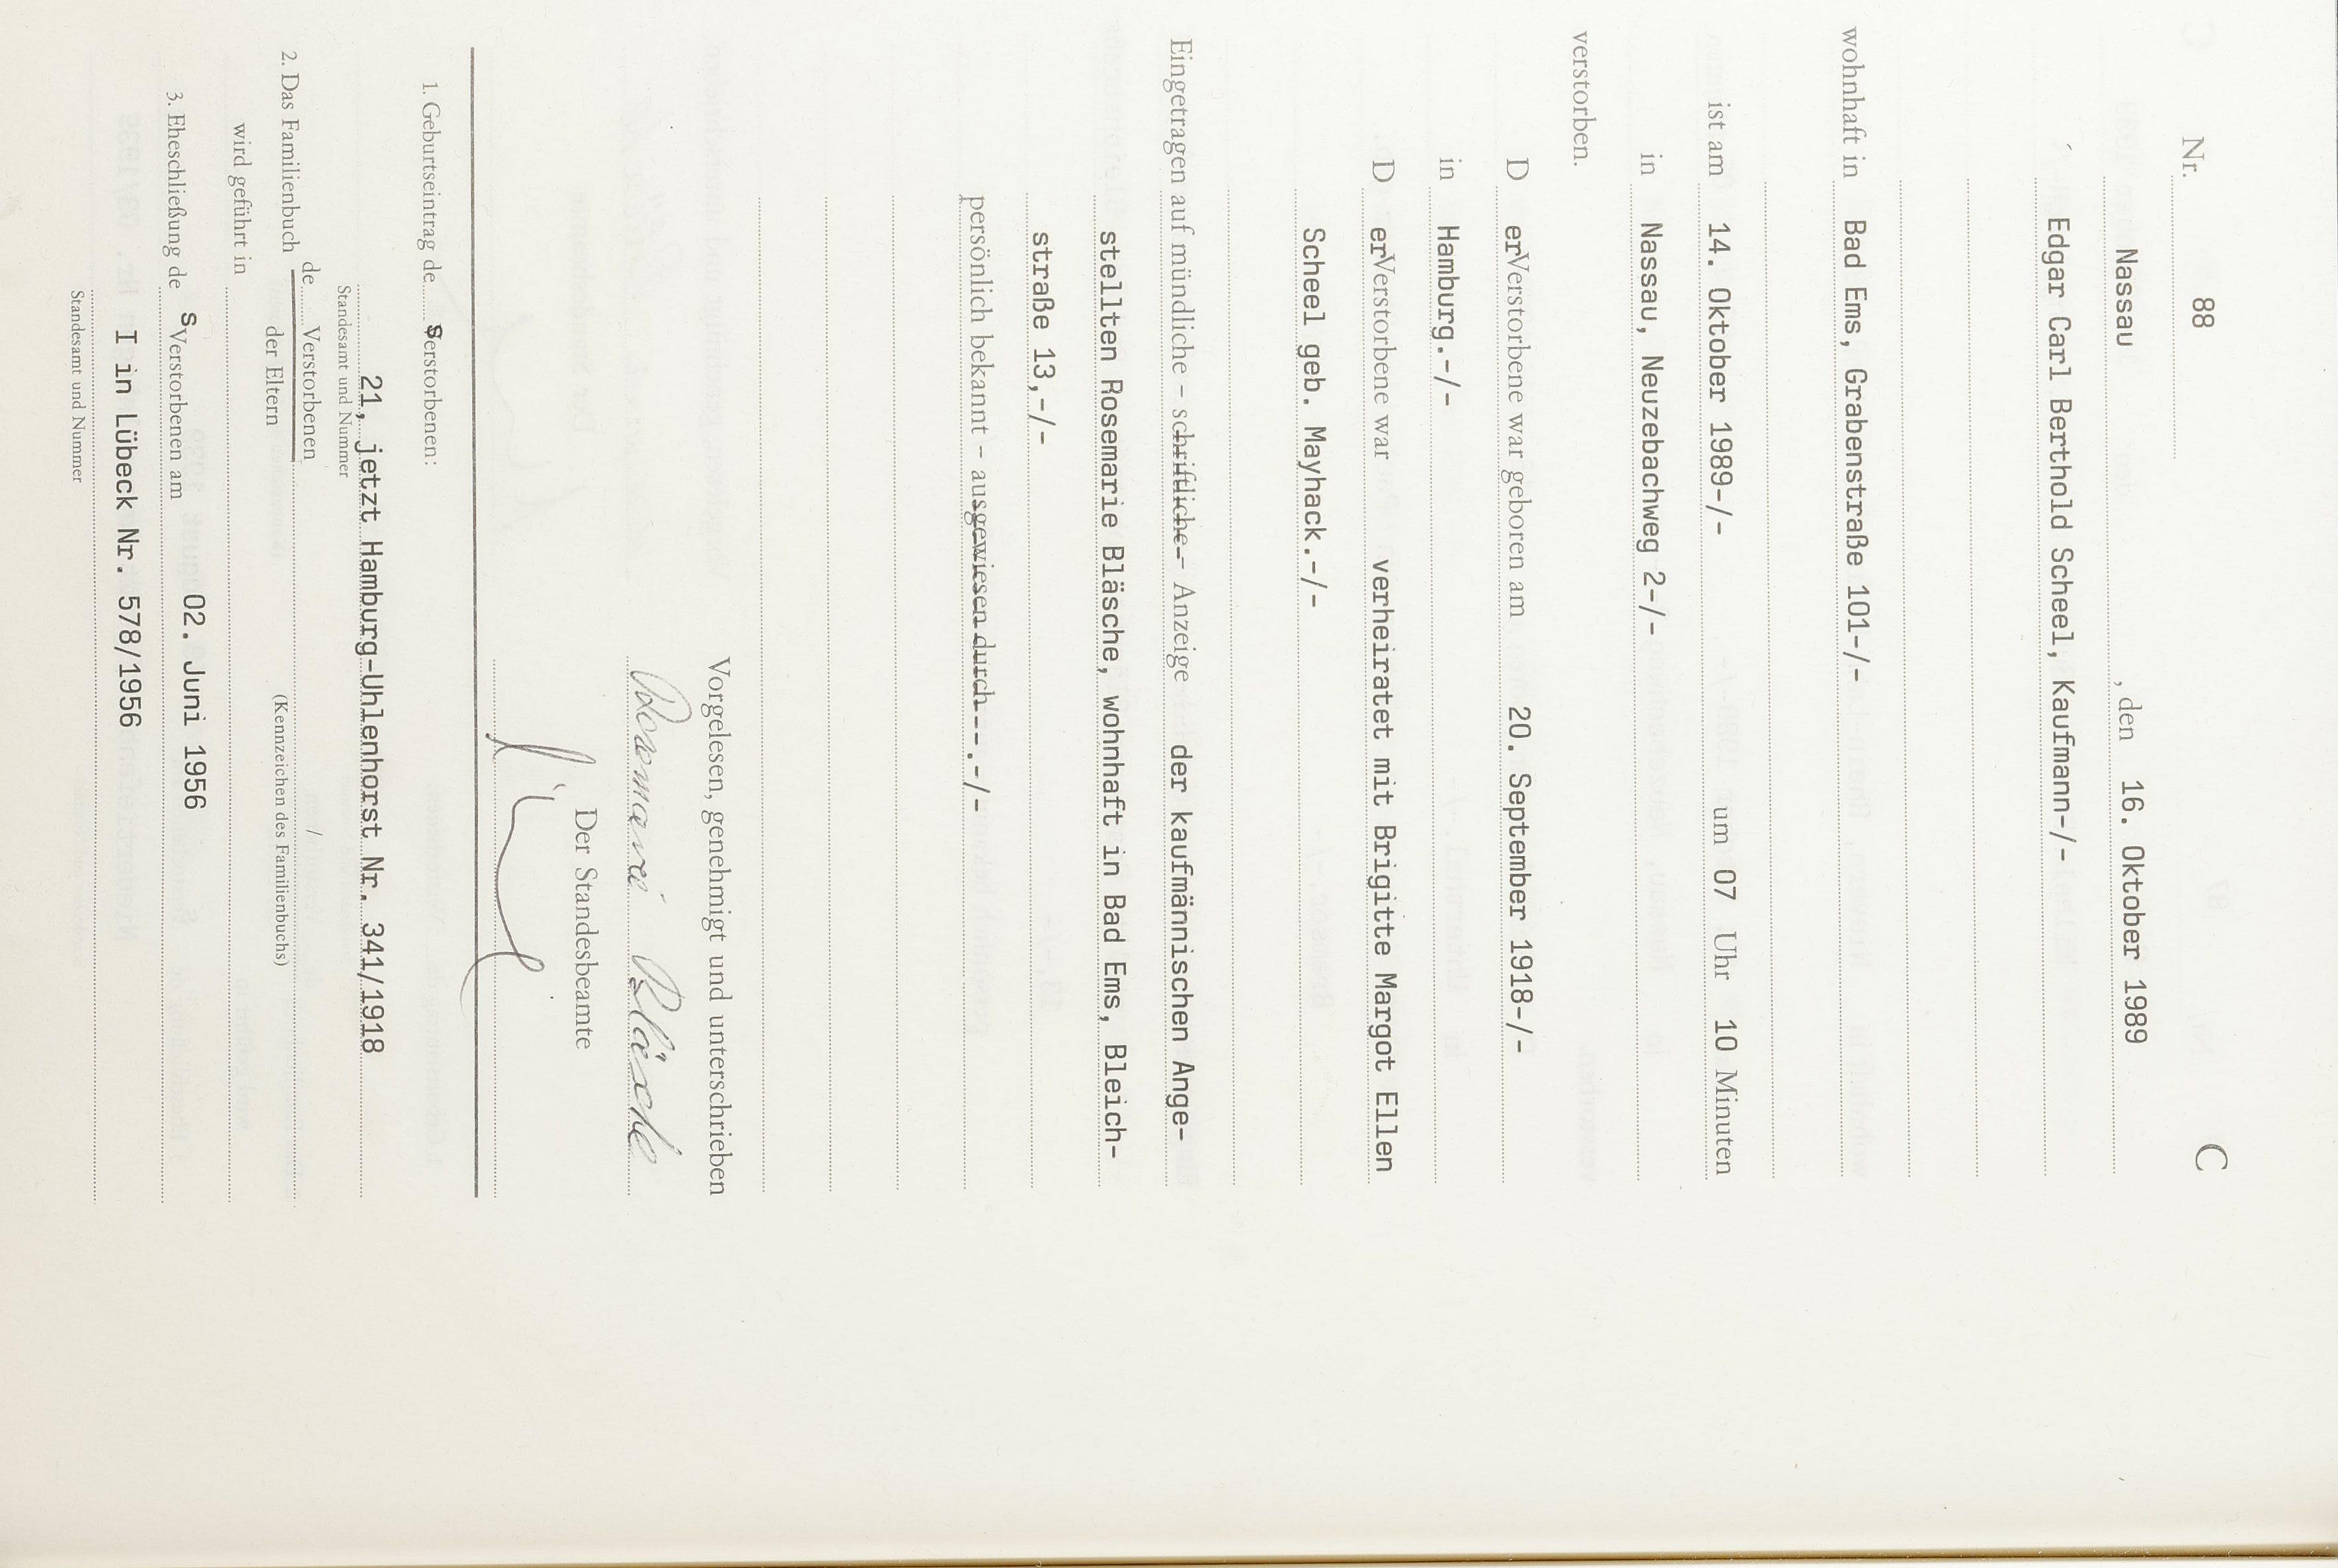 C
Nr. 88
Nassau , den 16. Oktober 1989
Edgar Carl Berthold Scheel, Kaufmann-/-
wohnhaft in Bad Ems, Grabenstraße 101-/-
ist am 14. Oktober 1989-/- um 07 Uhr 10 Minuten
in Nassau, Neuzebachweg 2-/-
verstorben.
D erVerstorbene war geboren am 20. September 1918-/-
in Hamburg.-/-
D erVerstorbene war verheiratet mit Brigitte Margot Ellen
Scheel geb. Mayhack.-/-
Eingetragen auf mündliche – schriftliche – Anzeige der kaufmännischen Ange-
stellten Rosemarie Bläsche, wohnhaft in Bad Ems, Bleich-
straße 13,-/-
persönlich bekannt – ausgewiesen durch---.-/-
Vorgelesen, genehmigt und unterschrieben
Rosemarie Bläsche
Der Standesbeamte
1. Geburtseintrag de s Verstorbenen:
21, jetzt Hamburg-Uhlenhorst Nr. 341/1918
Standesamt und Nummer
2. Das Familienbuch de Verstorbenen /
der Eltern (Kennzeichen des Familienbuchs)
wird geführt in
3. Eheschließung de s Verstorbenen am 02. Juni 1956
I in Lübeck Nr. 578/1956
Standesamt und Nummer